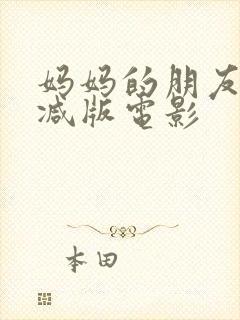 妈妈的朋友
减版電影
本田